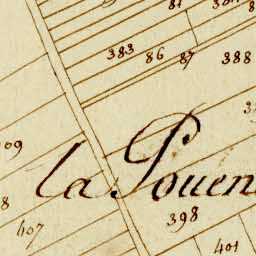 383 86 87 388
la Pouen
398
407
401